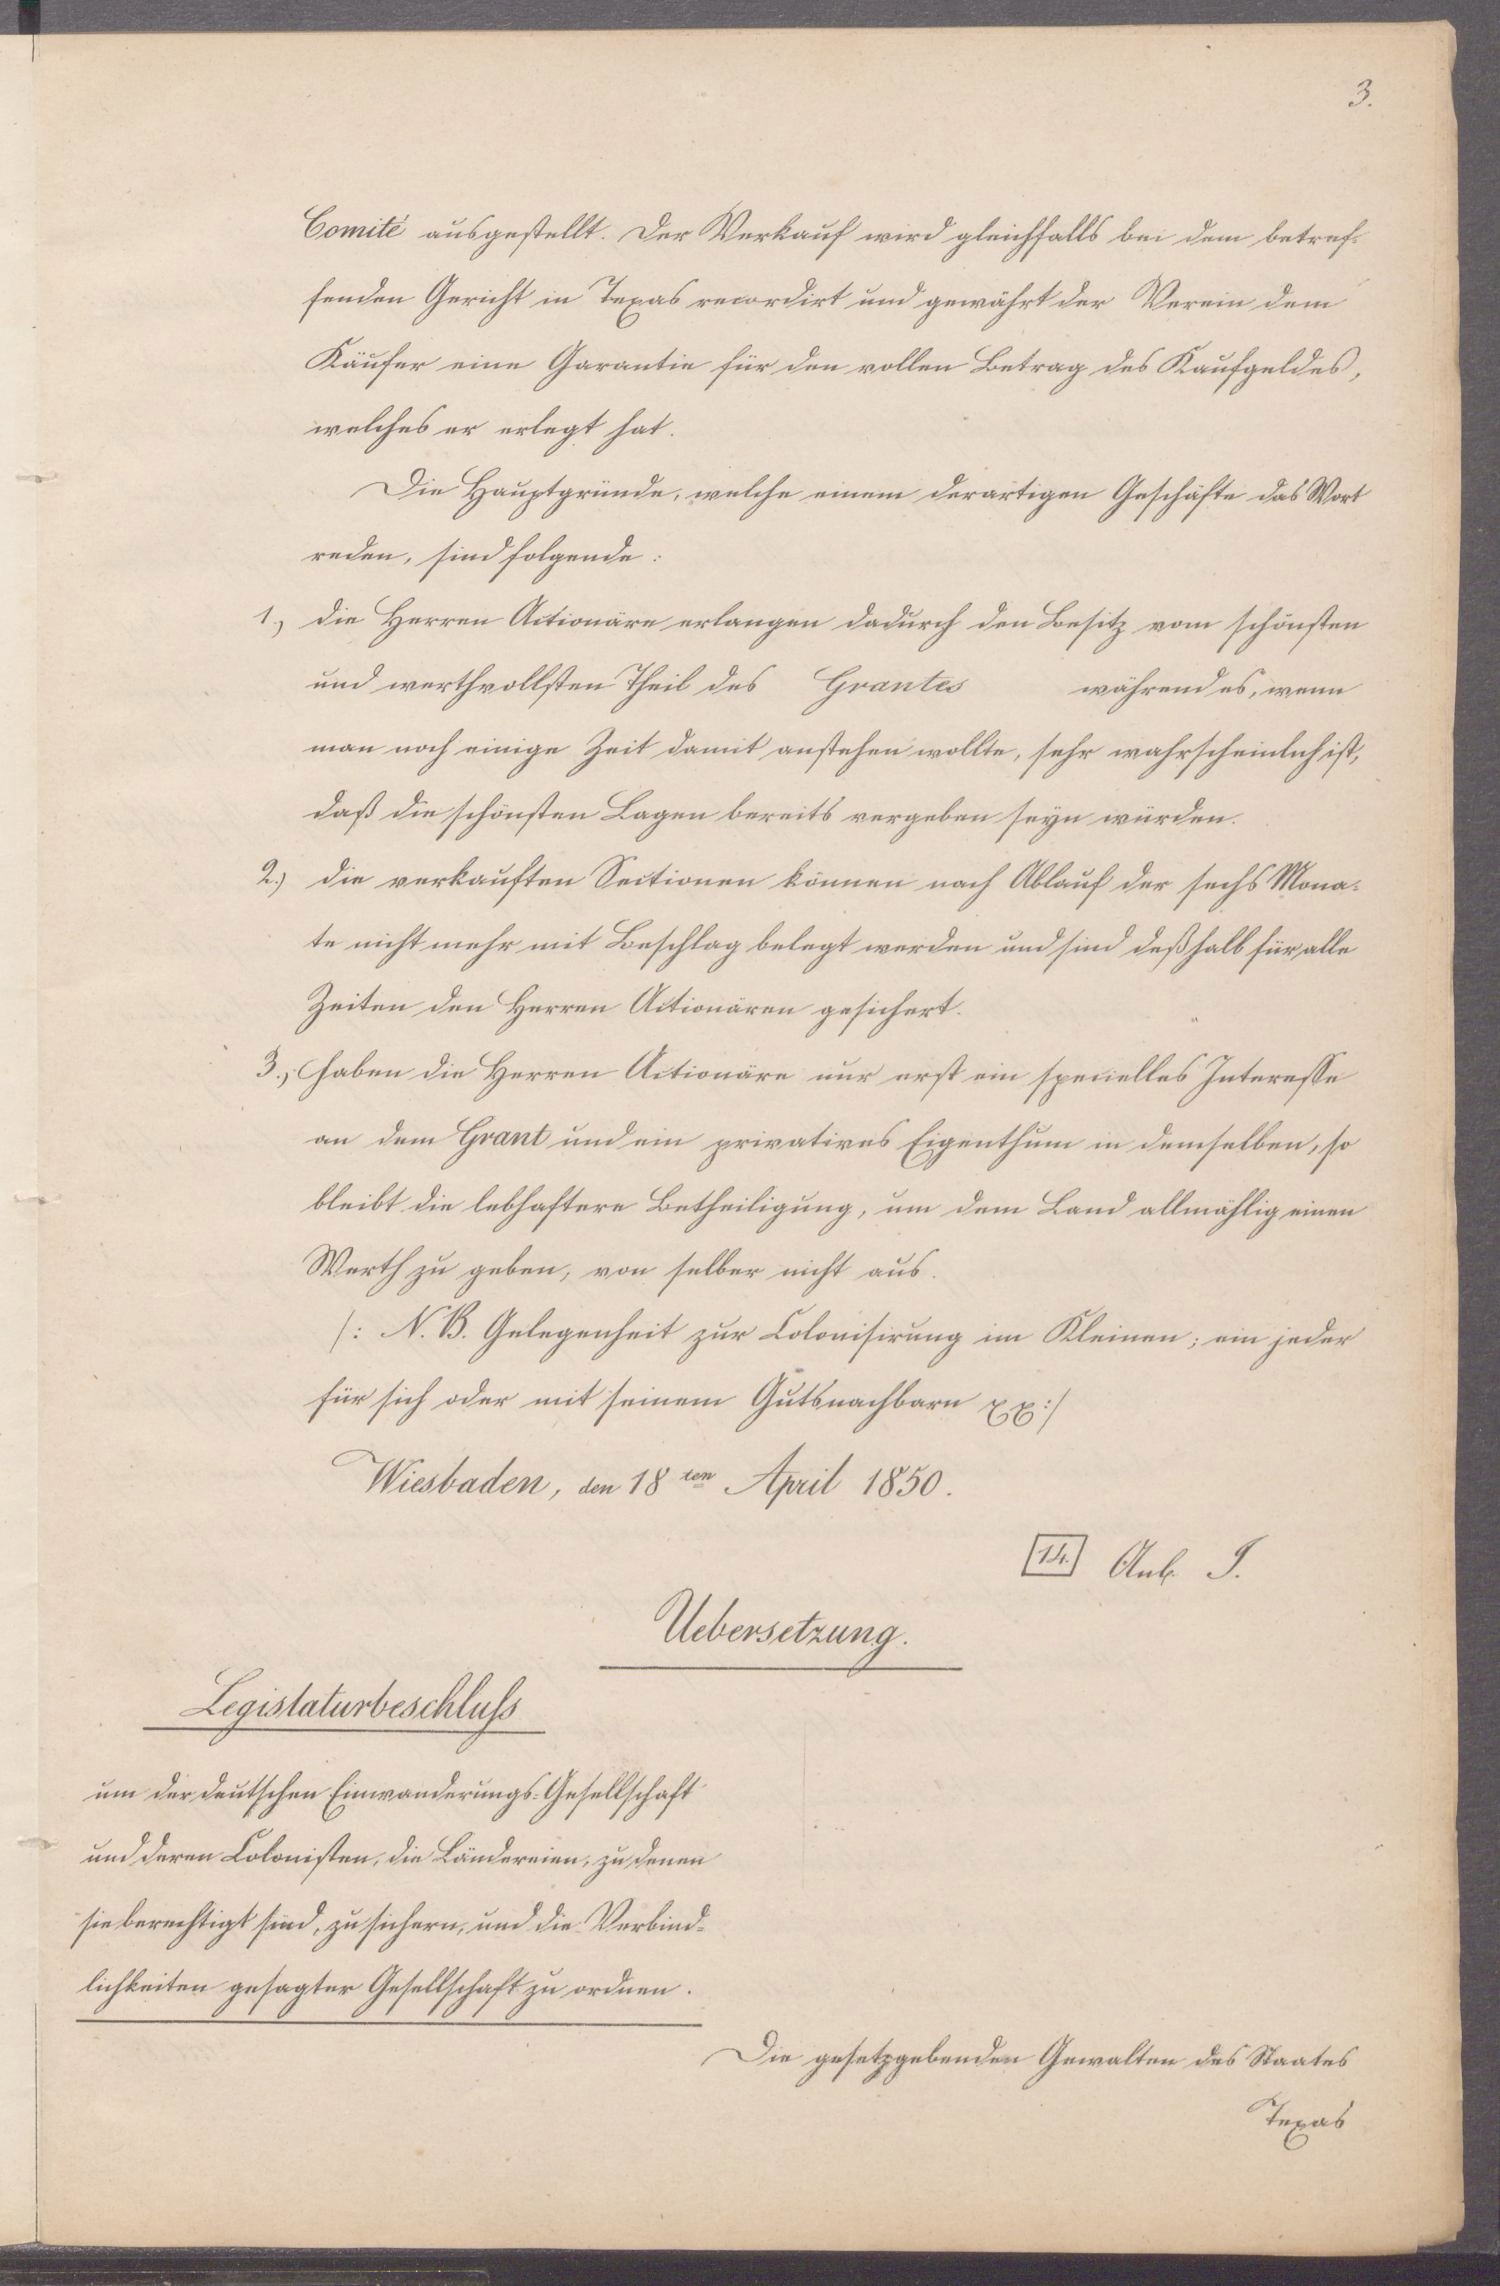 3.
Comité ausgestellt. Der Verkauf wird gleichfalls bei dem betref-
fenden Gericht in Texas recordirt und gewährt der Verein dem
Käufer eine Garantie für den vollen Betrag des Kaufgeldes,
welches er erlegt hat.
Die Hauptgründe, welche einem derartigen Geschäfte das Wort
reden, sind folgende:
1.) die Herren Actionäre erlangen dadurch den Besitz vom schönsten
und werthvollsten Theil des Grantes während es, wenn
man noch einige Zeit damit anstehen wollte, sehr wahrscheinlich ist,
daß die schönsten Lagen bereits vergeben seyn würden.
2.) die verkauften Sectionen können nach Ablauf der sechs Mona-
te nicht mehr mit Beschlag belegt werden und sind deßhalb für alle
Zeiten den Herren Actionären gesichert.
3.) haben die Herren Actionäre nur erst ein specielles Interesse
an dem Grant und ein privatives Eigenthum in demselben, so
bleibt die lebhaftere Betheiligung, um dem Land allmählig einen
Werth zu geben, von selber nicht aus.
/: N.B. Gelegenheit zur Colonisirung im Kleinen; ein jeder
für sich oder mit seinem Gutsnachbarn :/
Wiesbaden, den 18ten April 1850.
14. Anl. I.
Uebersetzung.
Legislaturbeschluß
um der deutschen Einwanderungs-Gesellschaft
und deren Colonisten, die Ländereien, zu denen
sie berechtigt sind, zu sichern, und die Verbind-
lichkeiten gesagter Gesellschaft zu ordnen.
Die gesetzgebenden Gewalten des Staates
Texas